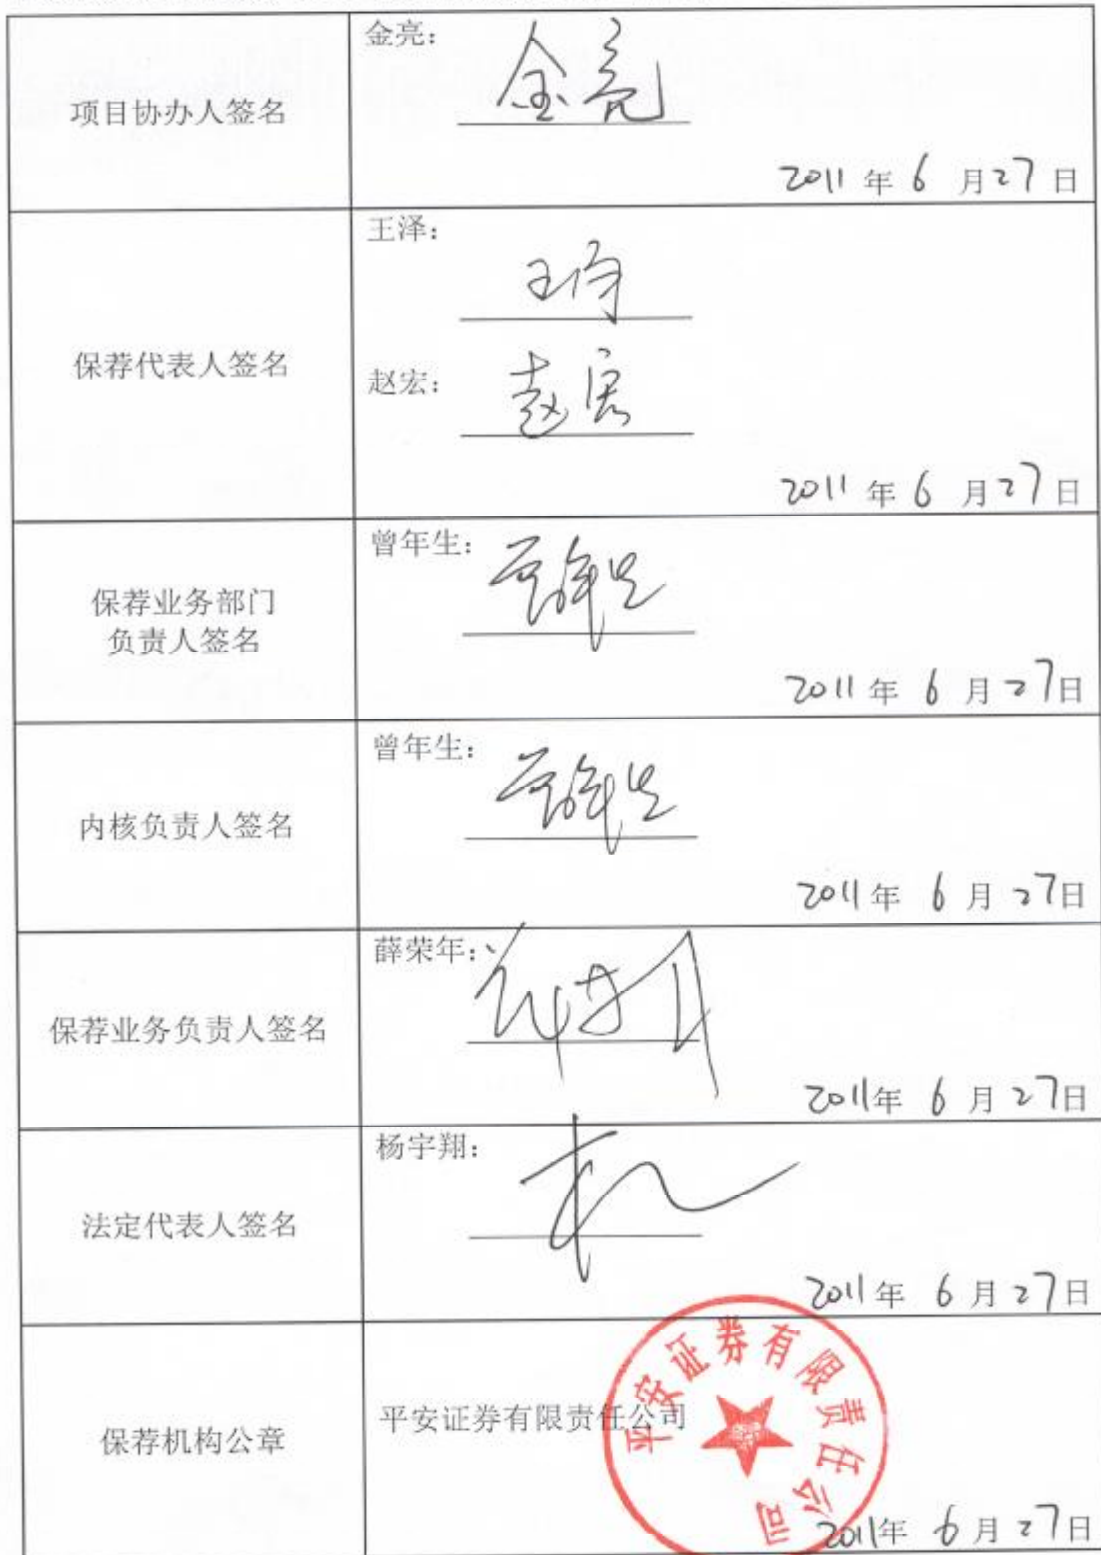 项目协办人签名
金亮：
金亮
2011年6月27日
保荐代表人签名
王泽：
赵宏：
赵宏
2011年6月27日
保荐业务部门
负责人签名
曾年生：
曾年生
2011年6月27日
内核负责人签名
曾年生：
曾年生
2011年6月27日
保荐业务负责人签名
薛荣年：
2011年6月27日
法定代表人签名
杨宇翔：
2011年6月27日
保荐机构公章
平安证券有限责任公司
平安证券有限责任公司
2011年6月27日